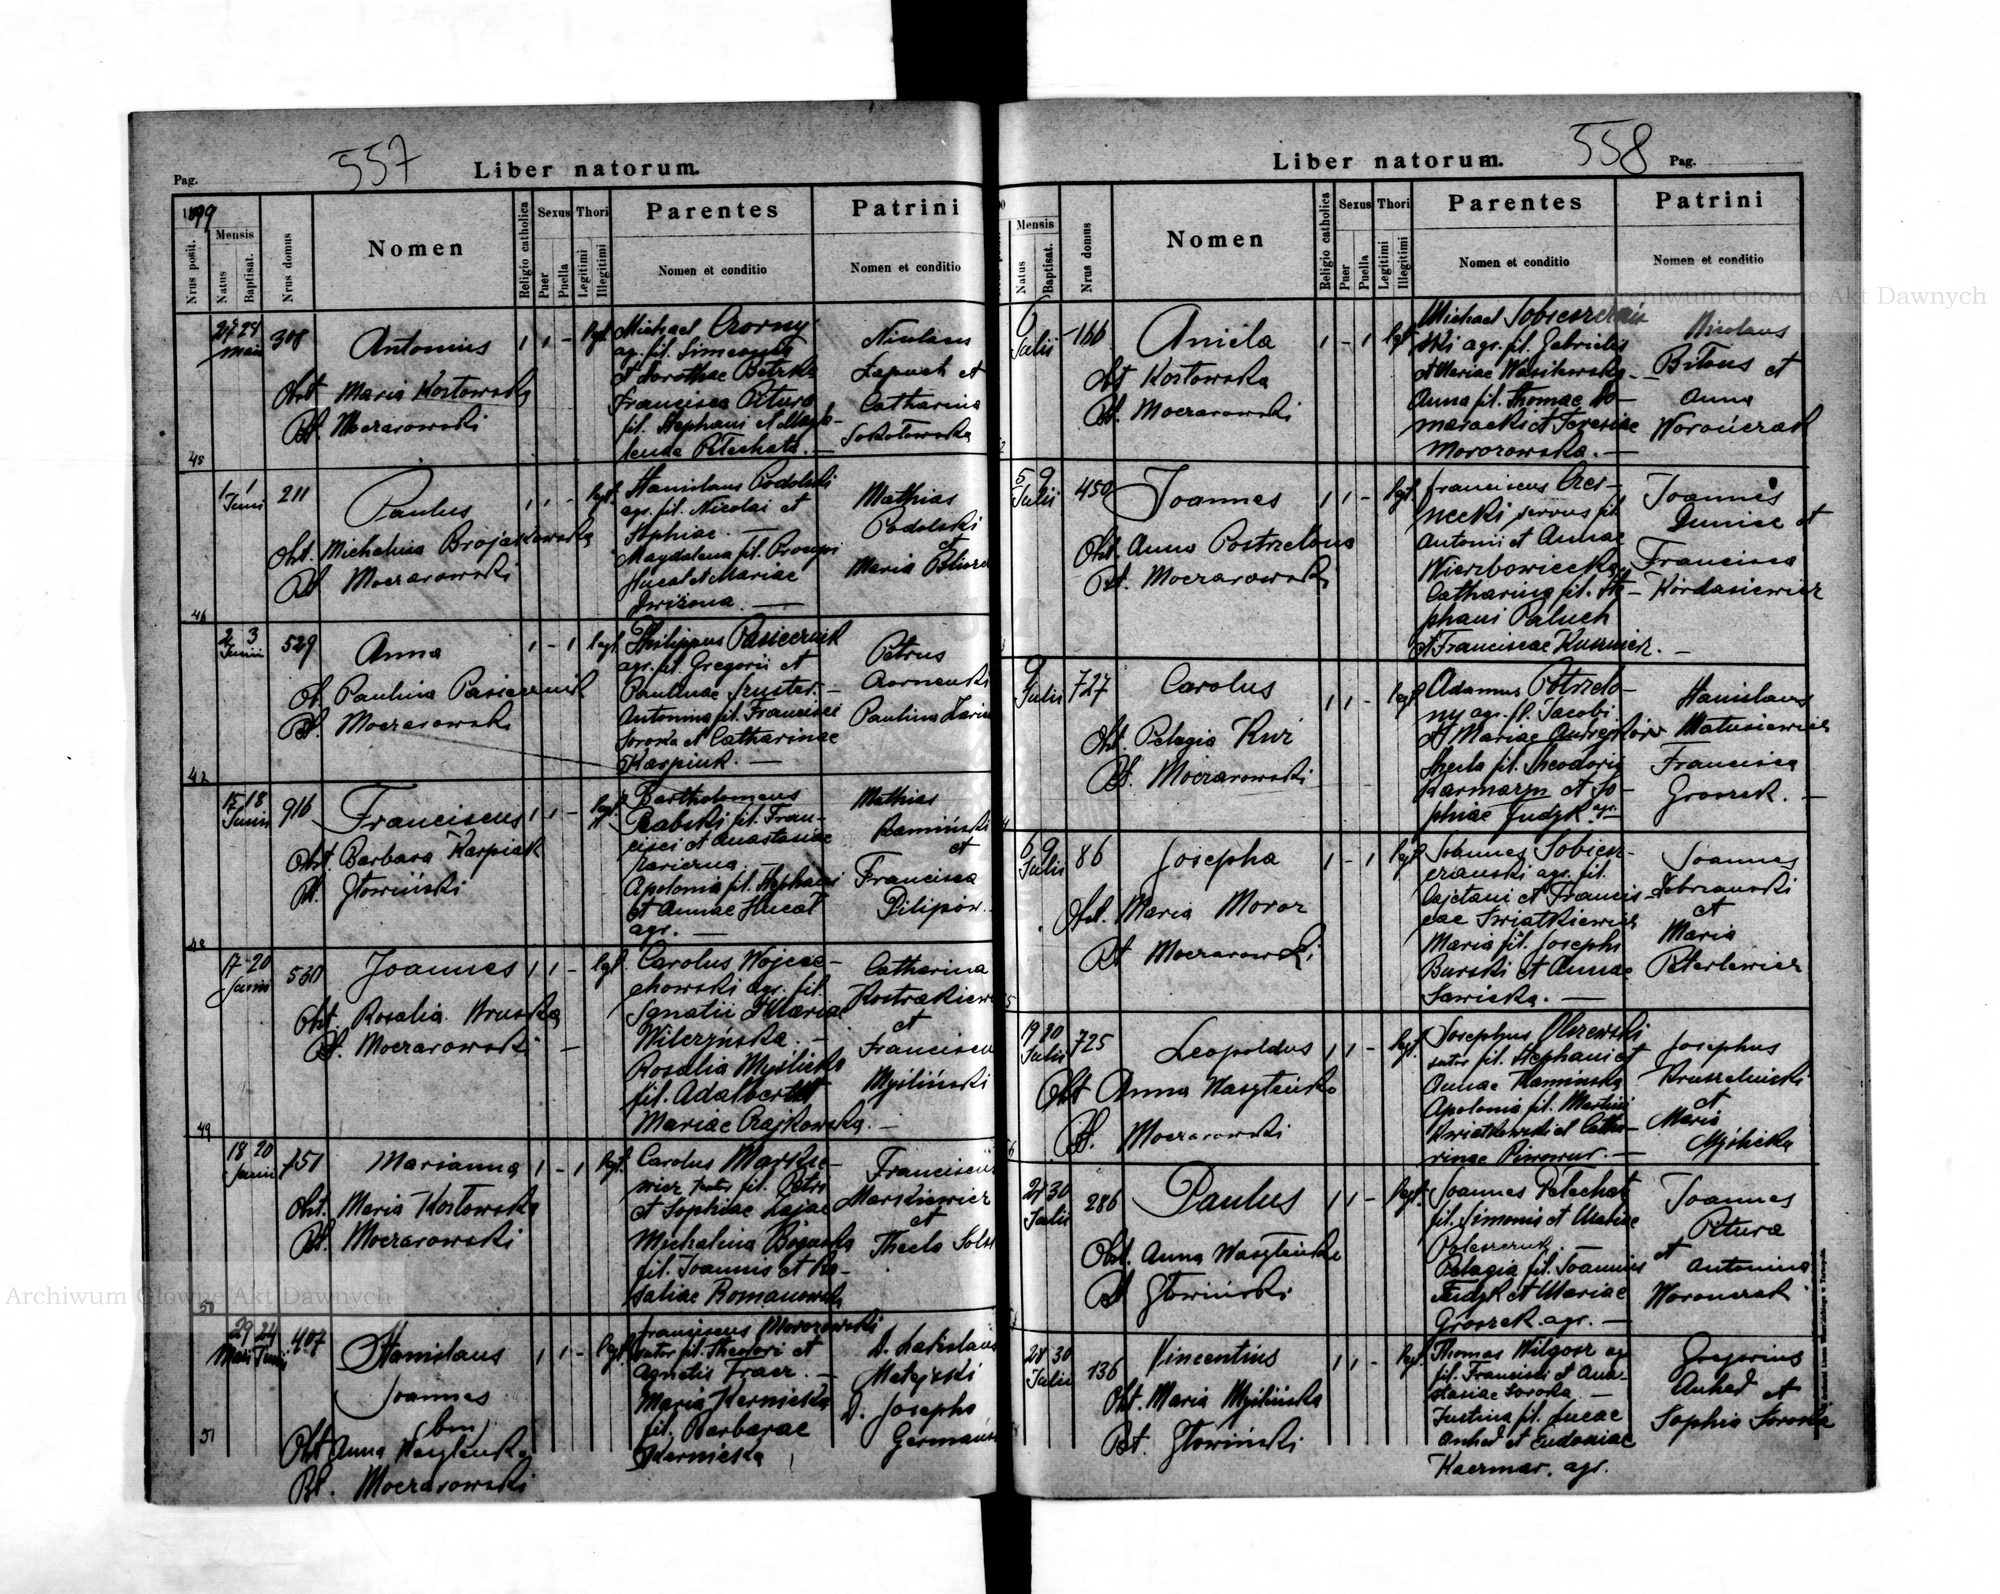 557
Pag.
Liber natorum.
1899
Nrus posit.
Mensis
Natus
Baptisat.
Nrus domus
Nomen
Religio catholica
Sexus
Puer
Puella
Thori
Legitimi
Illegitimi
Parentes
Nomen et conditio
Patrini
Nomen et conditio
45
27 28
Maii
308
Antonius
Obst Maria Kostowska
Bt. Moczarowski
1 1 - legt.
Michael Czorny
agr. fil. Simeonis
et Dorothae Betzka
Francisca Pitura
fil. Stephani et Magda-
lenae Petechata. —
Nicolaus
Łapuch et
Catharina
Sokołowska
46
1 1
Junii
211
Paulus
Obst. Michalina Brojakowska
Bt Moczarowski
1 1 - legt.
Stanislaus Podolski
agr. fil. Nicolai et
Sophiae. —
Magdalena fil. Procopi
Hucal et Mariae
Mathias
Podolski
et
Maria
42
2 3
Junii
529
Anna
Ob. Paulina Pasiecznik
Bt. Moczarowski
1 - 1 legt
Philippus Pasiecznik
agr. fil. Gregorii et
Paulinae Szuster. —
Antonina fil. Francisci
Soroka et Catharinae
Karpiuk. —
Petrus
Czornenki
Paulina
48
15 18
Junii
916
Franciscus
Obst. Barbara Karpiak
Bt. Głowiński
1 1 - legt.
Bartholomeus
Rabski fil. Fran-
cisci et Anastasiae
Apolonia fil. Stephani
et Annae Hucal
agr. —
Mathias
Kamiński
et
Francisca
Pilipów.
49
17 20
Junii
530
Joannes
Obst. Rosalia Hruska
Bt. Moczarowski
1 1 - legt.
Carolus Wojcie-
chowski agr. fil.
Ignatii et Mariae
Wilczyńska. —
Rosalia Myślicka
fil. Adalberti et
Mariae Czajkowska. —
Catharina
Kostrakiew
et
Francisca
Myśliński
50
18 20
Junii
151
Marianna
Obst. Maria Kostowska
Bt. Moczarowski
1 - 1 legt.
Carolus Markie-
wicz sutor fil. Petri
et Sophiae Zając
Michalina Bojarska
fil. Joannis et Ro-
saliae Romanowska
Franciscus
Markiewicz
et
Thecla
51
29 24
Maii Junii
407
Stanislaus
Joannes
(bin)
Obst Anna Waszlenko
Bt. Moczarowski
1 1 - legt.
Franciscus Morozowski
sutor fil. Theodori et
Agnetis Tracz. —
Maria Kernicka
fil. Barbarae
Kernicka
D. Ladislaus
Matejski
D. Josepha
German
558
Pag.
Liber natorum.
Mensis
Natus
Baptisat.
Nrus domus
Nomen
Religio catholica
Sexus
Puer
Puella
Thori
Legitimi
Illegitimi
Parentes
Nomen et conditio
Patrini
Nomen et conditio
6
Julii
166
Aniela
Obst Kostowska
Bt. Moczarowski
1 - 1 legt
Michael Sobieszczań-
ski agr. fil. Gabrielis
et Mariae Wasilewska. —
Anna fil. Thomae Do-
maracki et Teresiae
Morozowska. —
Nicolaus
Bitous et
Anna
Worończak
5 9
Julii
450
Joannes
Obst. Anna Postrzelona
Bt. Moczarowski
1 1 - legt.
Franciscus Czer-
necki servus fil.
Antonii et Annae
Wierzbowiecka
Catharina fil. Ste-
phani Paluch
et Franciscae Kusznier. —
Joannes
Dunise et
Francisca
Kordasiewicz
9
Julii
727
Carolus
Obst. Pelagia Kuź
Bt. Moczarowski
1 1 - legt.
Adamus Potrzelo-
ny agr. fil. Jacobi
et Mariae Andrejków
Thecla fil. Theodori
Karmazyn et So-
phiae Judyk agr. —
Stanislaus
Matusiewicz
Francisca
Groszek. —
6 9
Julii
86
Josepha
Obst. Maria Moroz
Bt Moczarowski
1 - 1 legt
Joannes Sobiesz-
czanski agr. fil.
Cajetani et Francis-
cae Swiatkiewicz
Maria fil. Josephi
Burski et Annae
Sawicka. —
Joannes
Dobrzanski
et
Maria
Peterlewicz
19 20
Julii
725
Leopoldus
Obst Anna Waszlenko
Bt. Moczarowski
1 1 - legt.
Josephus Olszewski
sutor fil. Stephani et
Annae Kaminska
Apolonia fil. Martini
Kwiatkowski et Catha-
rinae Piwowar. —
Josephus
Kruszelnicki
et
Maria
Myślicka
27 30
Julii
286
Paulus
Obst. Anna Waszlenko
Bt Głowiński
1 1 - legt.
Joannes Petechat
fil. Simonis et Mariae
Poleszczuk. —
Pelagia fil. Joannis
Judyk et Mariae
Groszek agr. —
Joannes
Pitura
et
Antonina
Woronczak
28 30
Julii
136
Vincentius
Obst. Maria Myślińska
Bt. Głowiński
1 1 - legt
Thomas Wilgosz agr
fil. Francisci et Ana-
stasiae Soroka —
Justina fil. Lucae
Anhel et Eudoxiae
Kaczmar. agr.
Gregorius
Anhel et
Sophia Soroka
Archiwum Głowne Akt Dawnych
Archiwum Głowne Akt Dawnych